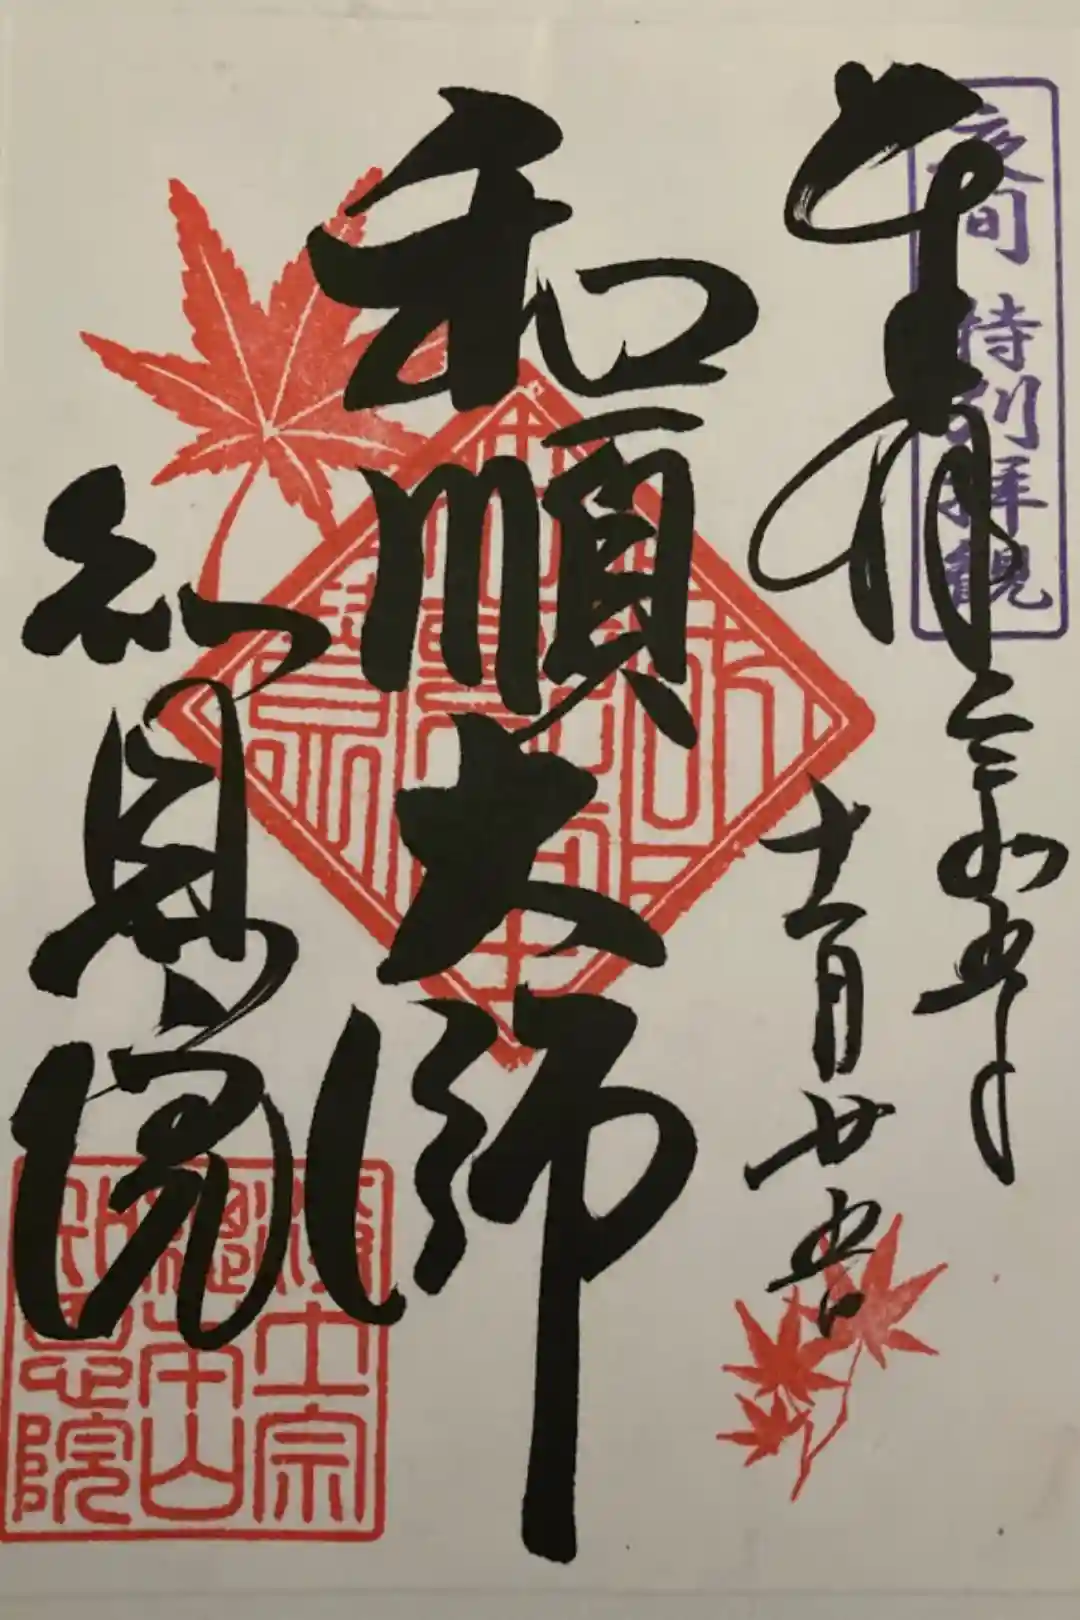 夜間特別拝観
奉拝
令和五年
十一月廿五日
和順大師
知恩院
淨土宗
總本山
知恩院